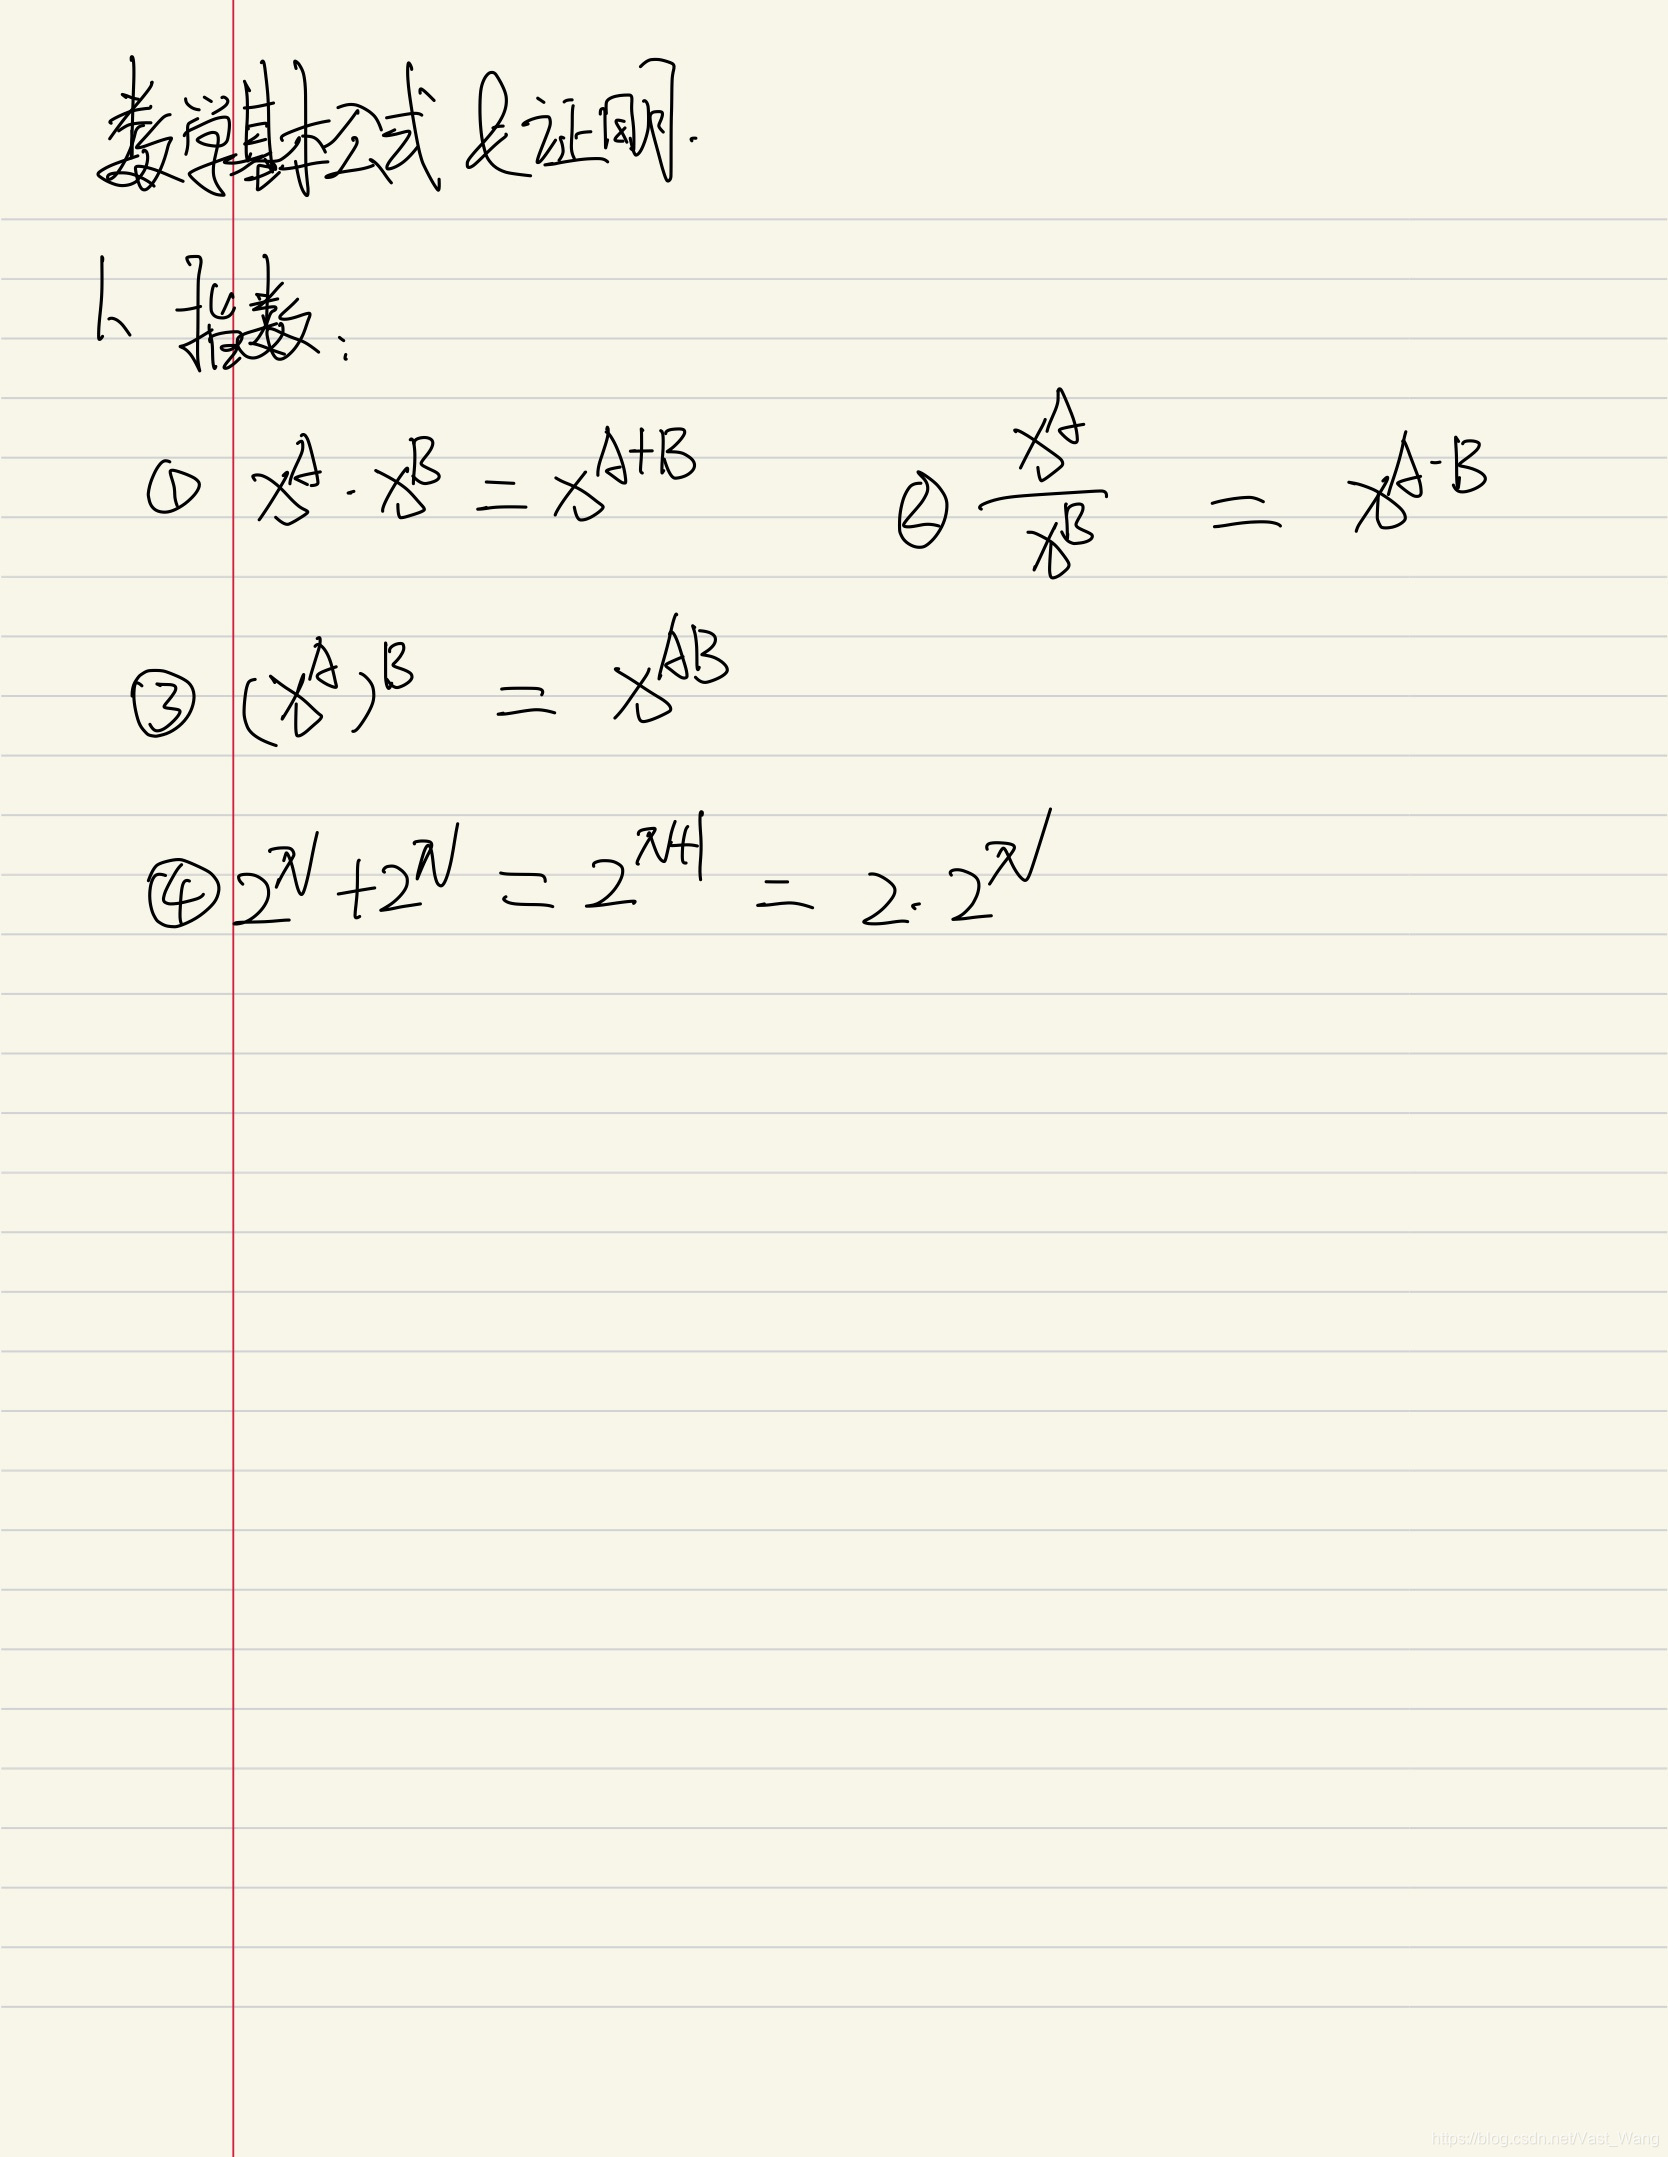 数学基本公式 & 证明.
1、指数:
① x^A · x^B = x^{A+B} ② \frac{x^A}{x^B} = x^{A-B}
③ (x^A)^B = x^{AB}
④ 2^N + 2^N = 2^{N+1} = 2 · 2^N
https://blog.csdn.net/Vast_Wang